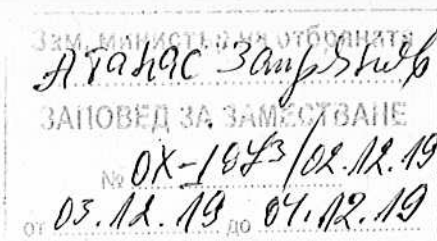 Зам. министър на отбраната
Атанас Запрянов
ЗАПОВЕД ЗА ЗАМЕСТВАНЕ
№ ОХ-1073/02.12.19
от 03.12.19 до 04.12.19